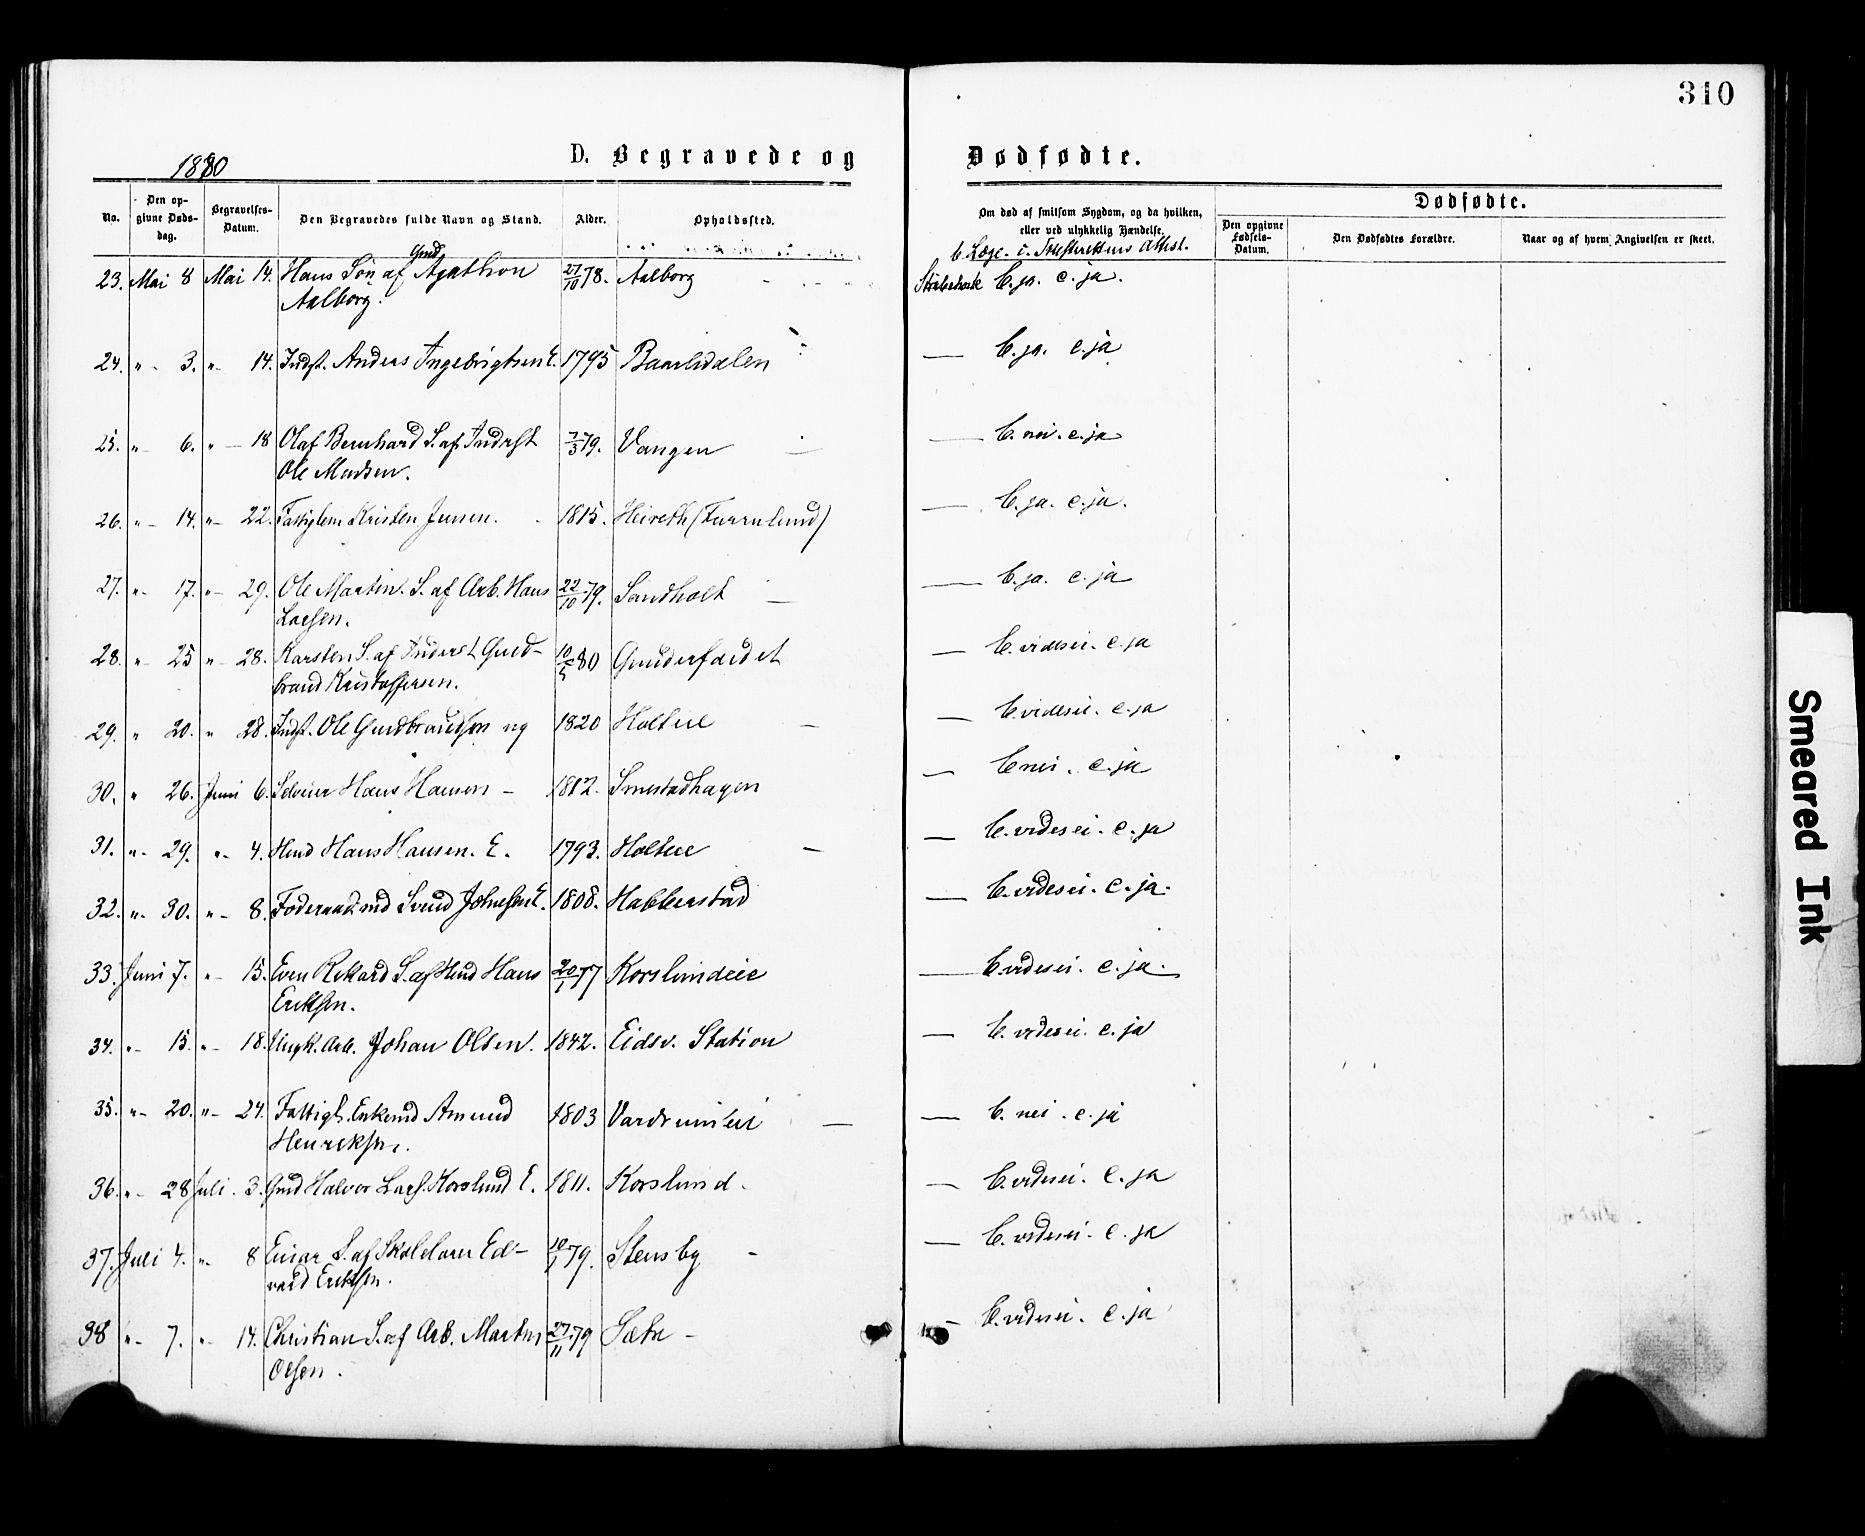 310
1880
D. Begravede og Dødfødte.
No.
Den opgivne Dødsdag.
Begravelses-Datum.
Den Begravedes fulde Navn og Stand.
Alder.
Opholdssted.
Om død af smitsom Sygdom, og da hvilken, eller ved ulykkelig Hændelse.
Dødfødte.
Den opgivne Fødsels-Datum.
Den Dødfødtes Forældre.
Naar og af hvem Angivelsen er skeet.
b. Læge. c. Attest.
23. Mai 8 Mai 14. Hans Søn af Gmd Agathon 27/10 78. Aalborg b. ja. c. ja.
Aalborg.
24. " 3. " 14. Indst. Anders Ingebrigtsen E. 1795 — b. ja. c. ja
25. " 6. " 18 Olaf Bernhard S. af Inderst 7/3 79. Vangen — b. nei. c. ja
Ole Madsen.
26. " 14. " 22. Fattiglem Kristen Jensen. 1815. (Furulund) — b. ja. c. ja.
27. " 17. " 29. Ole Martin. S. af Arb. Hans 22/10 79. Sandholt — b. ja. c. ja
Larsen.
28. " 25 " 28. Karsten S. af Inderst Gud- 10/5 80 — b. vides ei. c. ja
brand Kristoffersen.
29. " 20. " 28. Indst. Ole Gudbrandsen ug 1820 Holteie — b. vides ei. c. ja
30. " 26. Juni 6. Selveier Hans Hansen 1812. Smestadhagen — b. nei. c. ja
31. " 29. " 4. Hmd Hans Hansen. E. 1793. Holteie — b. vides ei. c. ja
32. " 30. " 8. Føderaadsmd Svend Johnsen E. 1808. Habberstad — b. vides ei. c. ja.
33. Juni 7. " 15. Even Rikard S. af Hmd Hans 20/1 77 Korslundeie — b. vides ei. c. ja.
Eriksen.
34. " 15. " 18. Ungk. Arb. Johan Olsen. 1842. Eidsv. Station — b. vides ei. c. ja
35. " 20. " 24. Fattigl. Enkemd Amund 1803 — b. nei. c. ja
Henriksen.
36. " 28 Juli 3. Gmd Halvor Lars. Korslund E. 1811. Korslund. — b. vides ei. c. ja
37. Juli 4. " 8 Einar S. af Skolelærer Ed- 10/1 79. Stensby — b. vides ei. c. ja
vard Eriksen.
38 " 7. " 14. Christian S. af Arb. Martin 27/11 79 Sætre — b. vides ei. c. ja
Olsen.
Smeared Ink